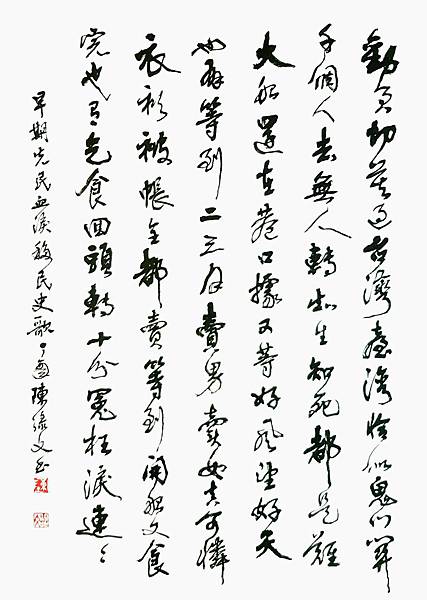 勸君切莫過台灣臺灣恰似鬼門關
千個人去無人轉知生知死都是難
大船還在巷口據又等好風望好天
也有等到二三月賣男賣女真可憐
衣衫被帳全都賣等到開船又食
完也有乞食回頭轉十分冤枉淚連々
早期先民血淚移民史歌 陳文書